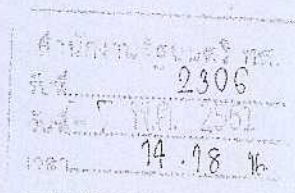 สำนักงานรัฐมนตรี ทส.
รับที่ 2306
วันที่ - 7 พ.ค. 2561
เวลา 14.18 น.